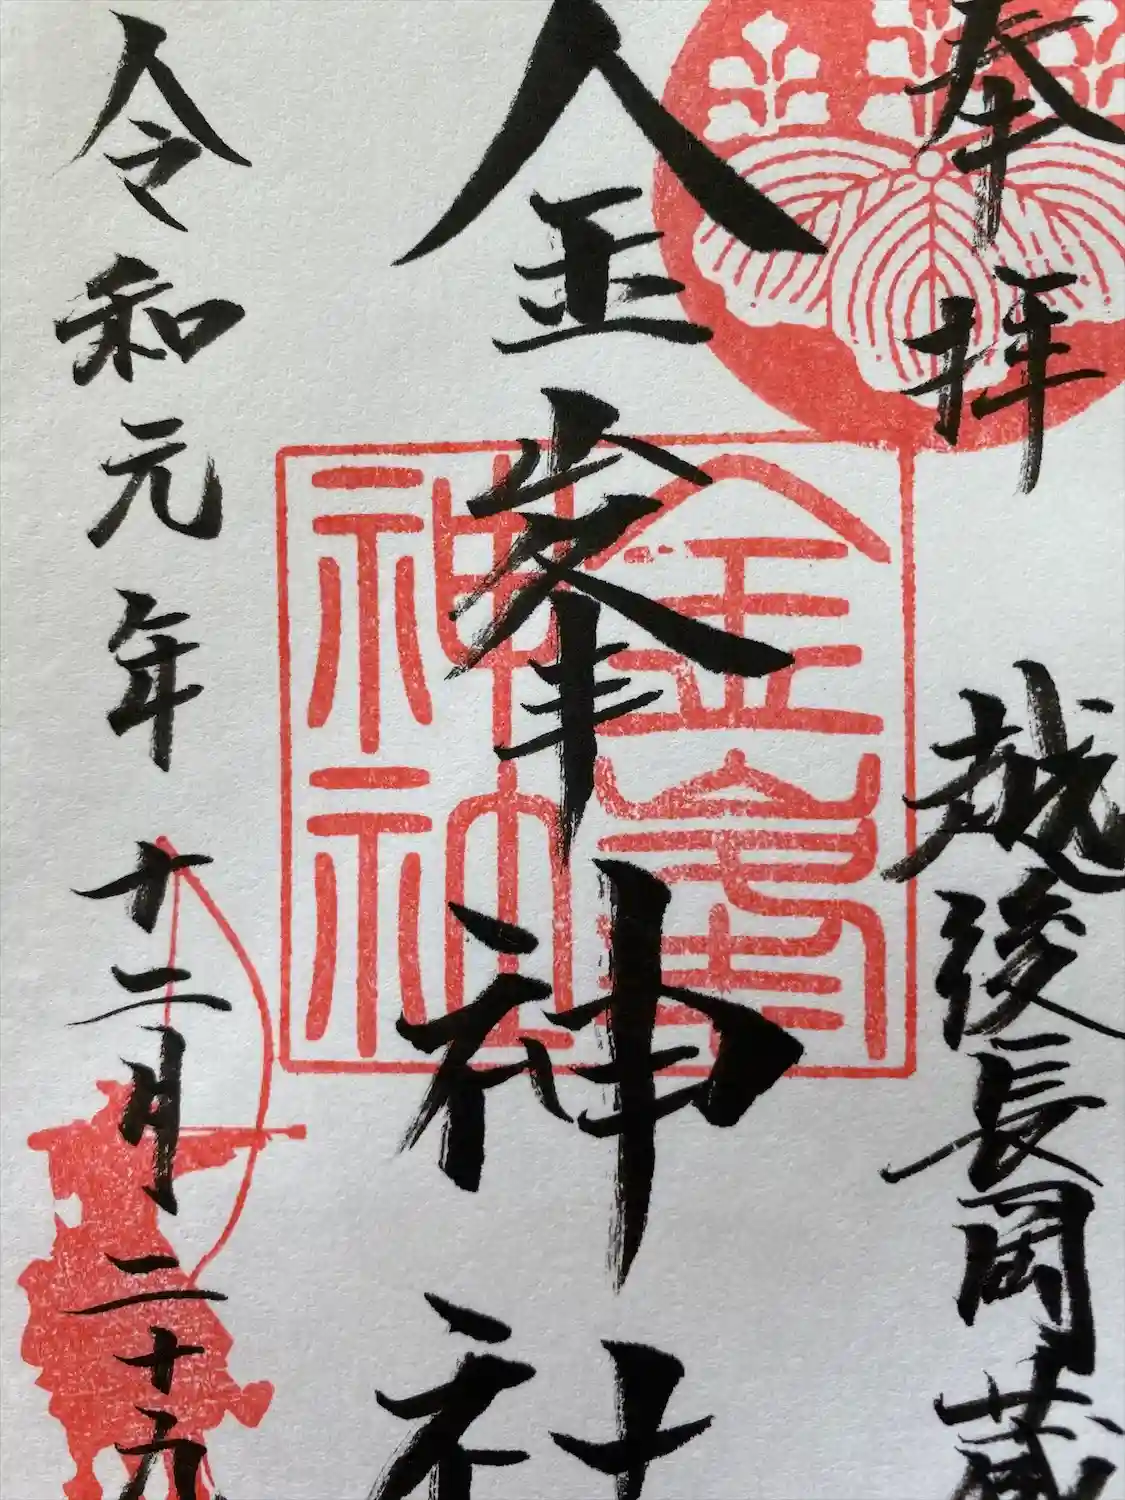 奉拝
越後長岡蔵
金峯神社
金峯
神社
令和元年十二月二十九